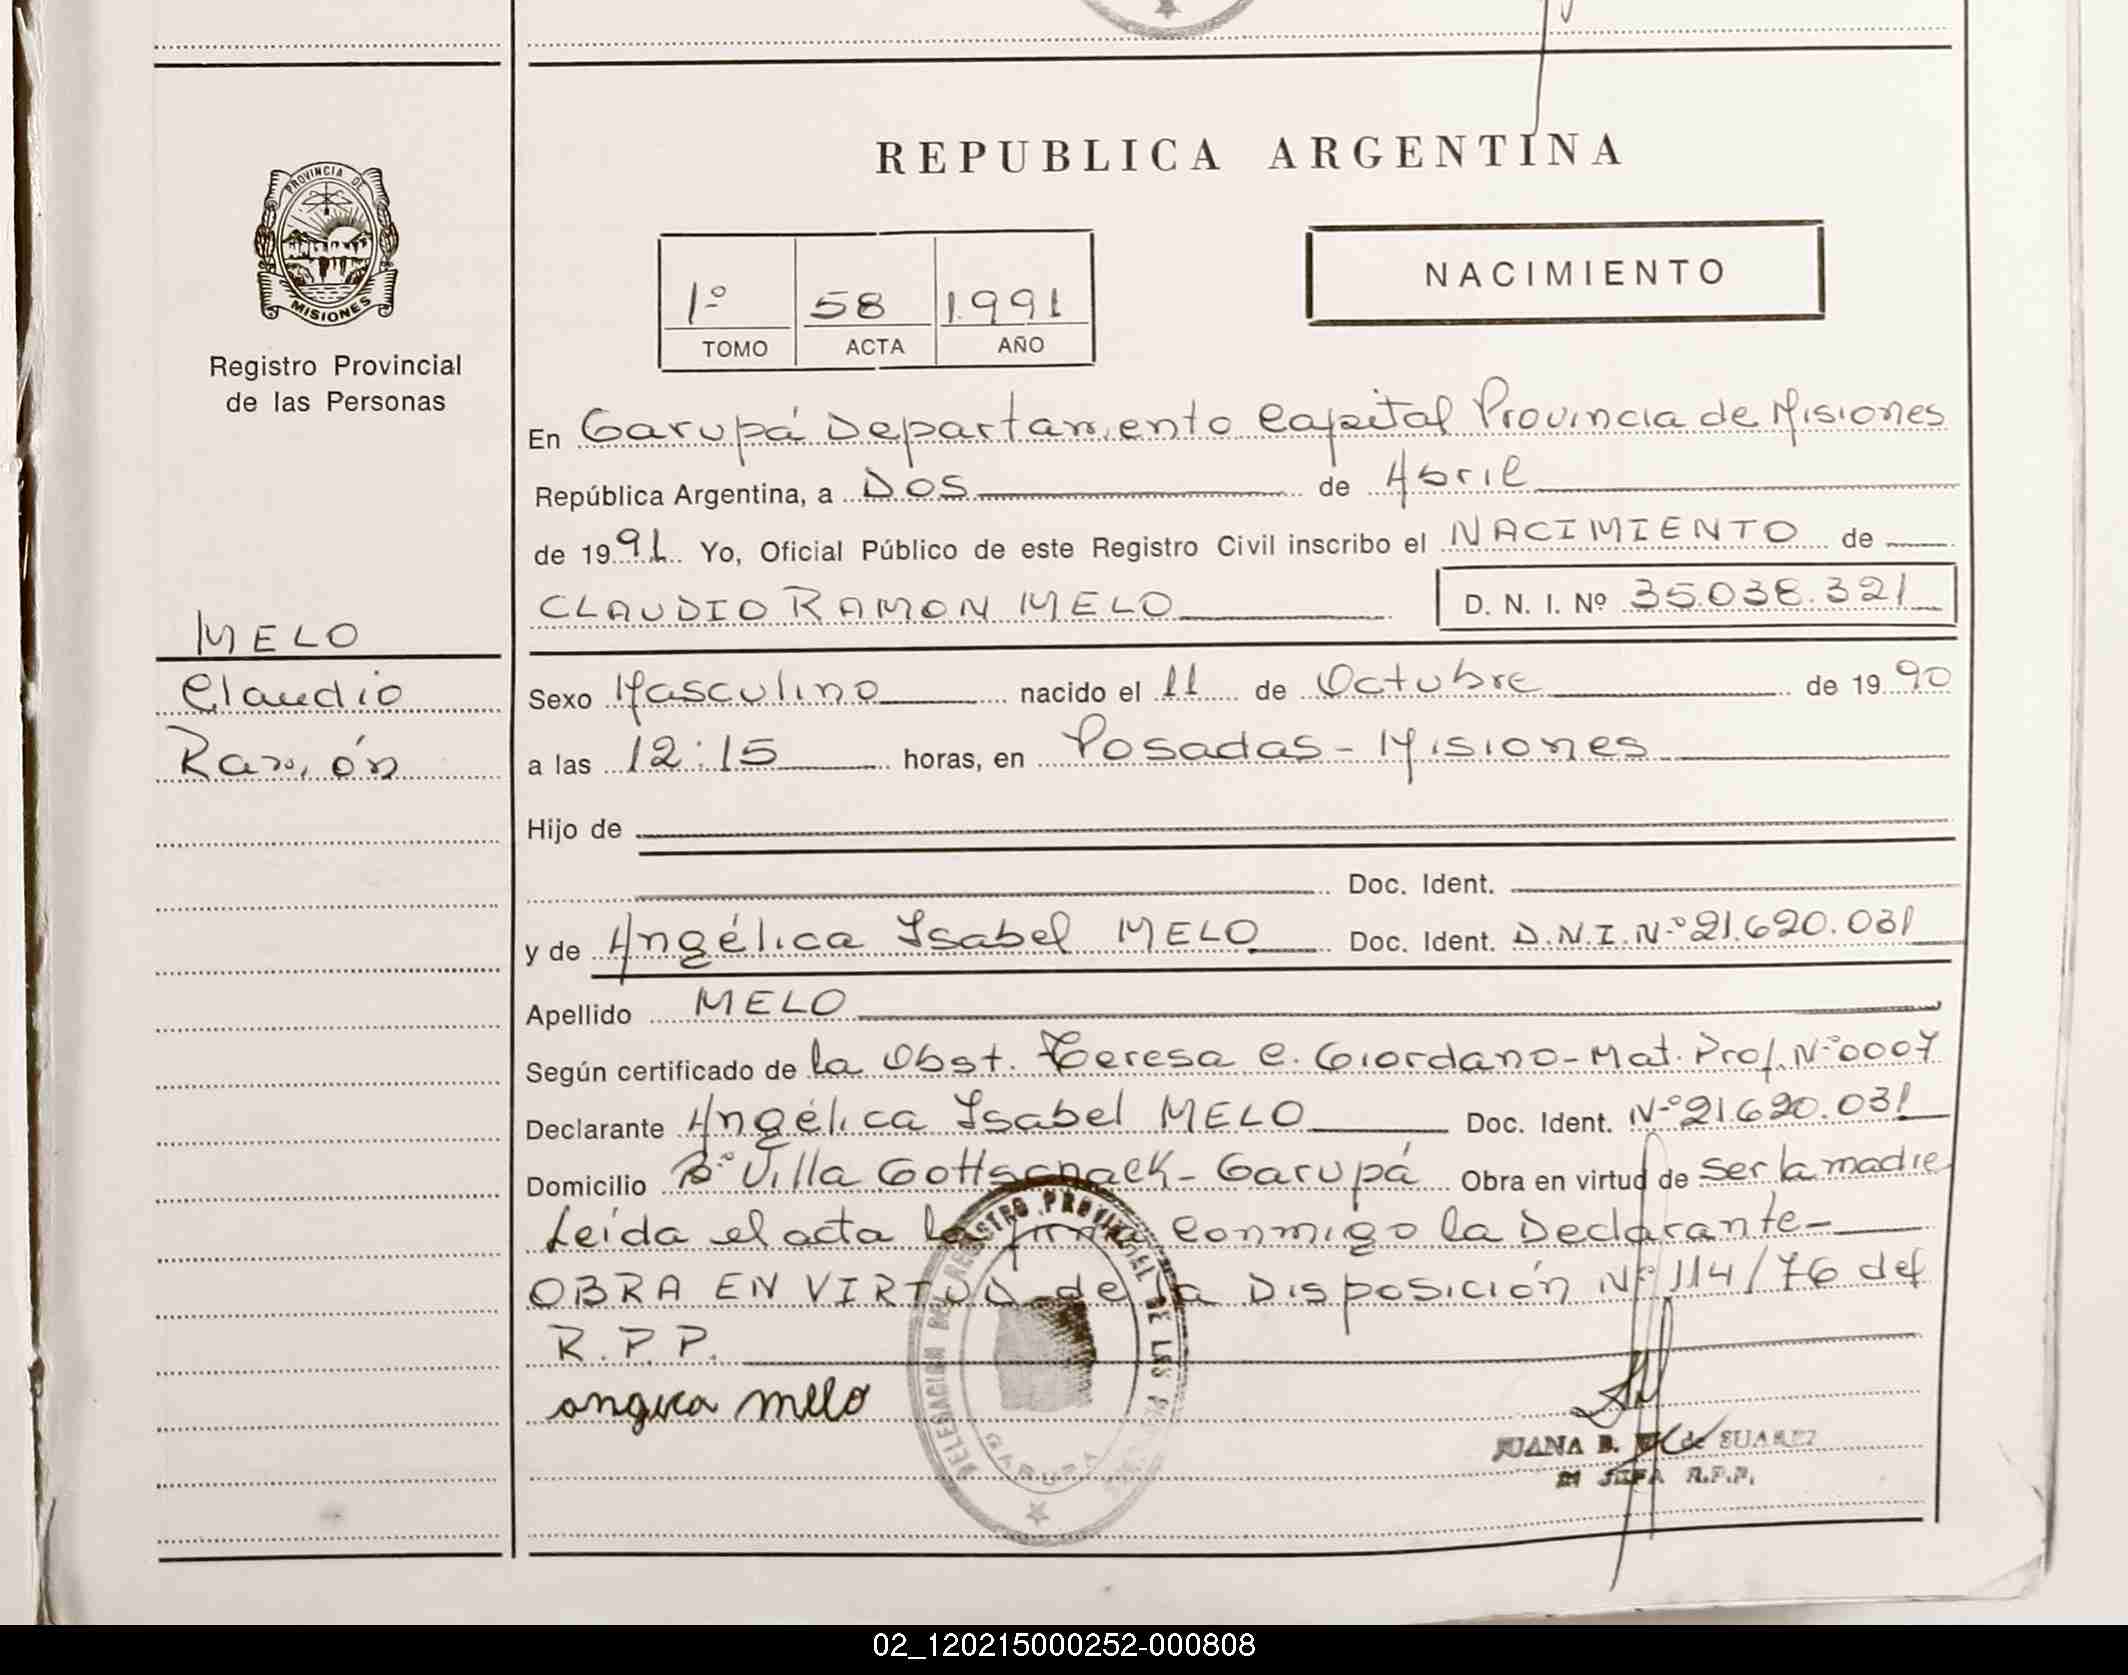 PROVINCIA DE
MISIONES
Registro Provincial
de las Personas
MELO
Claudio
Ramón
REPUBLICA ARGENTINA
1º 58 1991
TOMO ACTA AÑO
NACIMIENTO
En Garupá Departamento Capital Provincia de Misiones
República Argentina, a Dos de Abril
de 1991 Yo, Oficial Público de este Registro Civil inscribo el NACIMIENTO de
CLAUDIO RAMON MELO D. N. I. Nº 35.038.321
Sexo Masculino nacido el 11 de Octubre de 1990
a las 12:15 horas, en Posadas - Misiones
Hijo de
Doc. Ident.
y de Angélica Isabel MELO Doc. Ident. D.N.I.Nº 21.620.031
Apellido MELO
Según certificado de la Obst. Teresa C. Giordano - Mat. Prof. Nº 0007
Declarante Angélica Isabel MELO Doc. Ident. Nº 21.620.031
Domicilio Bº Villa Gottschalk - Garupá Obra en virtud de ser la madre
Leída el acta la firma conmigo la Declarante -
OBRA EN VIRTUD de la Disposición Nº 114/76 del
R.P.P.
angica melo
DELEGACION DEL REGISTRO PROVINCIAL DE LAS
GARUPA
JUANA B. de SUAREZ
JEFA R.P.P.
02_120215000252-000808